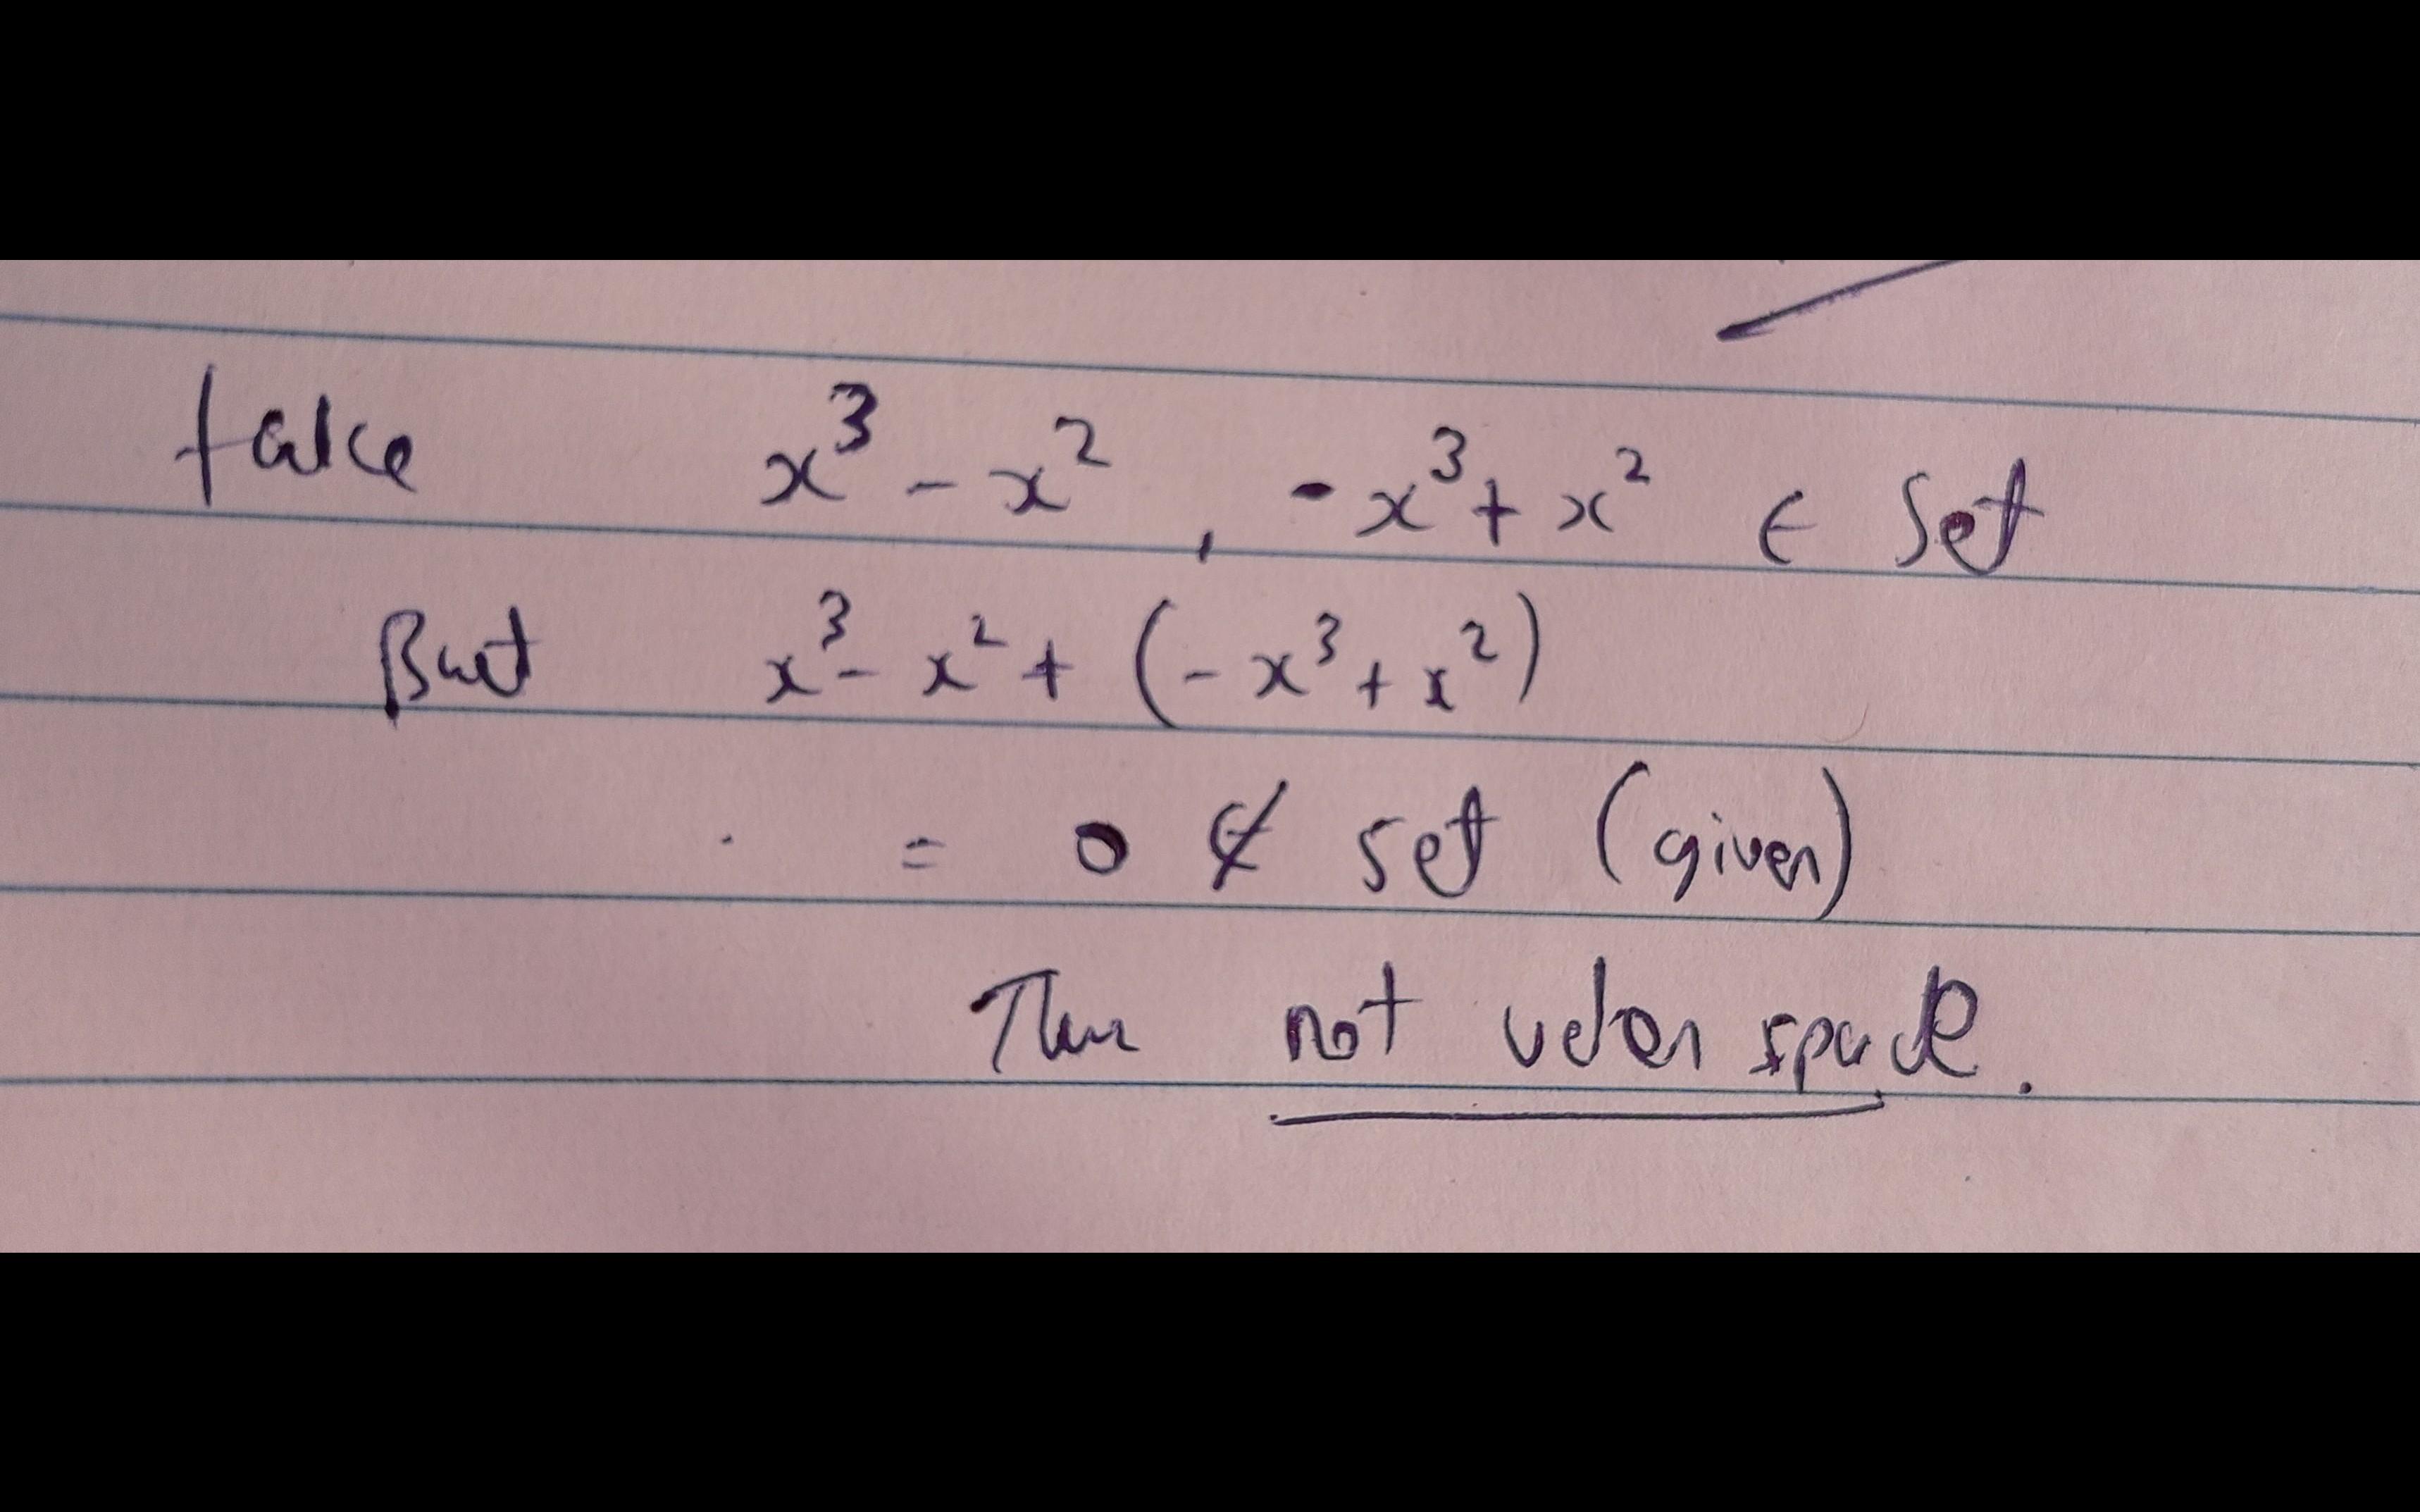 take x³ - x² , - x³ + x² ∈ Set
But x³ - x² + (- x³ + x²)
= 0 ∉ set (given)
Thus not vector space.